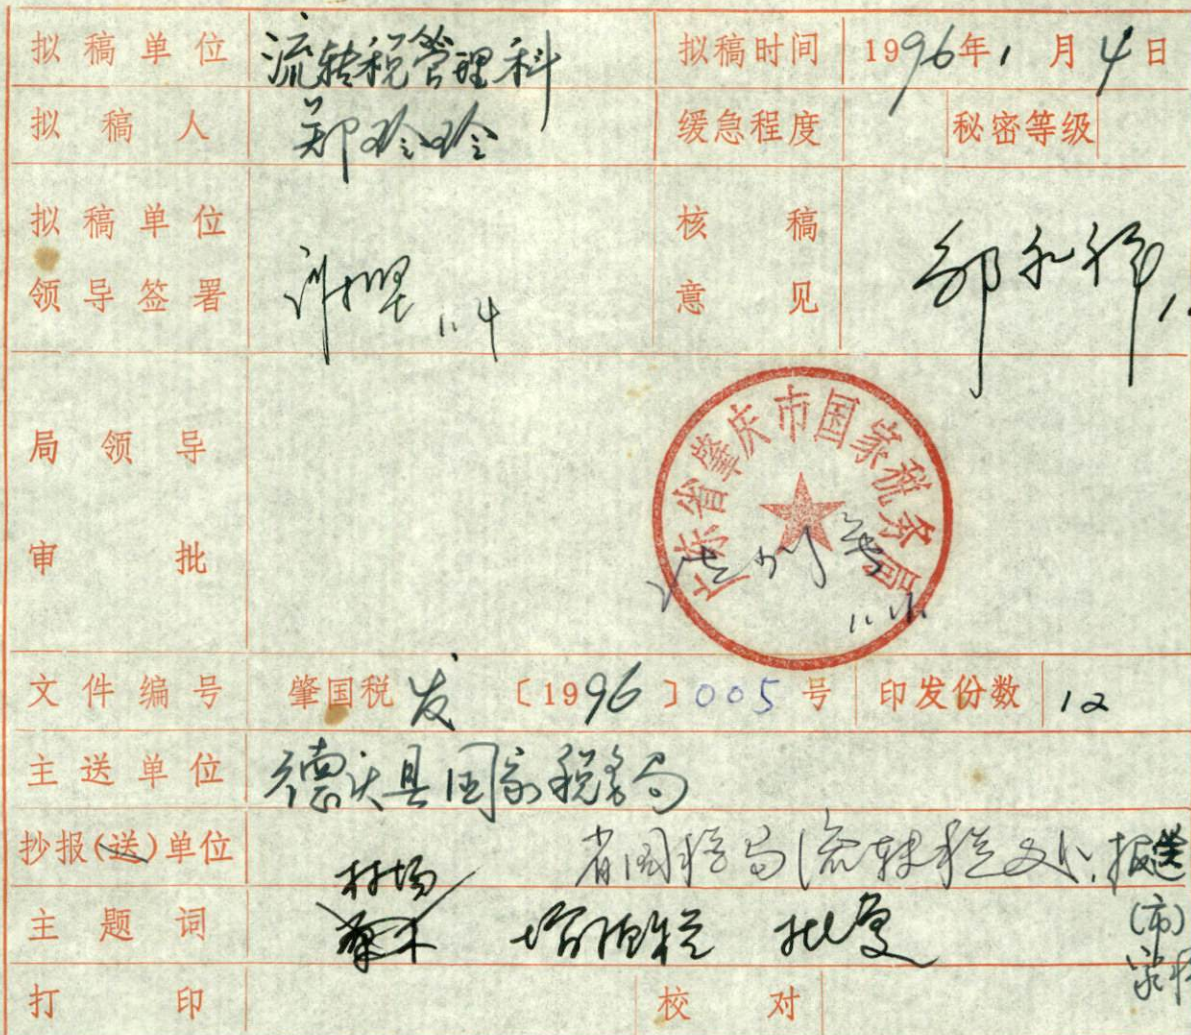 拟稿单位 流转税管理科 拟稿时间 1996年1月4日
拟稿人 郑玲玲 缓急程度 秘密等级
拟稿单位 核稿
领导签署 1.4 意见
局领导
审批
广东省肇庆市国家税务局
文件编号 肇国税发〔1996〕005号 印发份数 12
主送单位 德庆县国家税务局
抄报(送)单位 省国税局流转税处
林场
主题词 增值税 批复
(市)
打印 校对